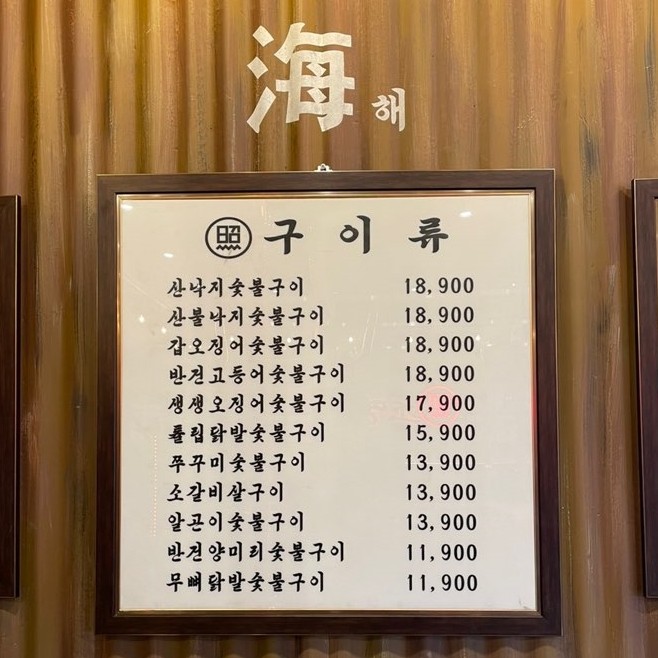 海 해
照 구이류
산낙지숯불구이 18,900
산불낙지숯불구이 18,900
갑오징어숯불구이 18,900
반건고등어숯불구이 18,900
생생오징어숯불구이 17,900
튤립닭발숯불구이 15,900
쭈꾸미숯불구이 13,900
소갈비살구이 13,900
알곤이숯불구이 13,900
반건양미리숯불구이 11,900
무뼈닭발숯불구이 11,900